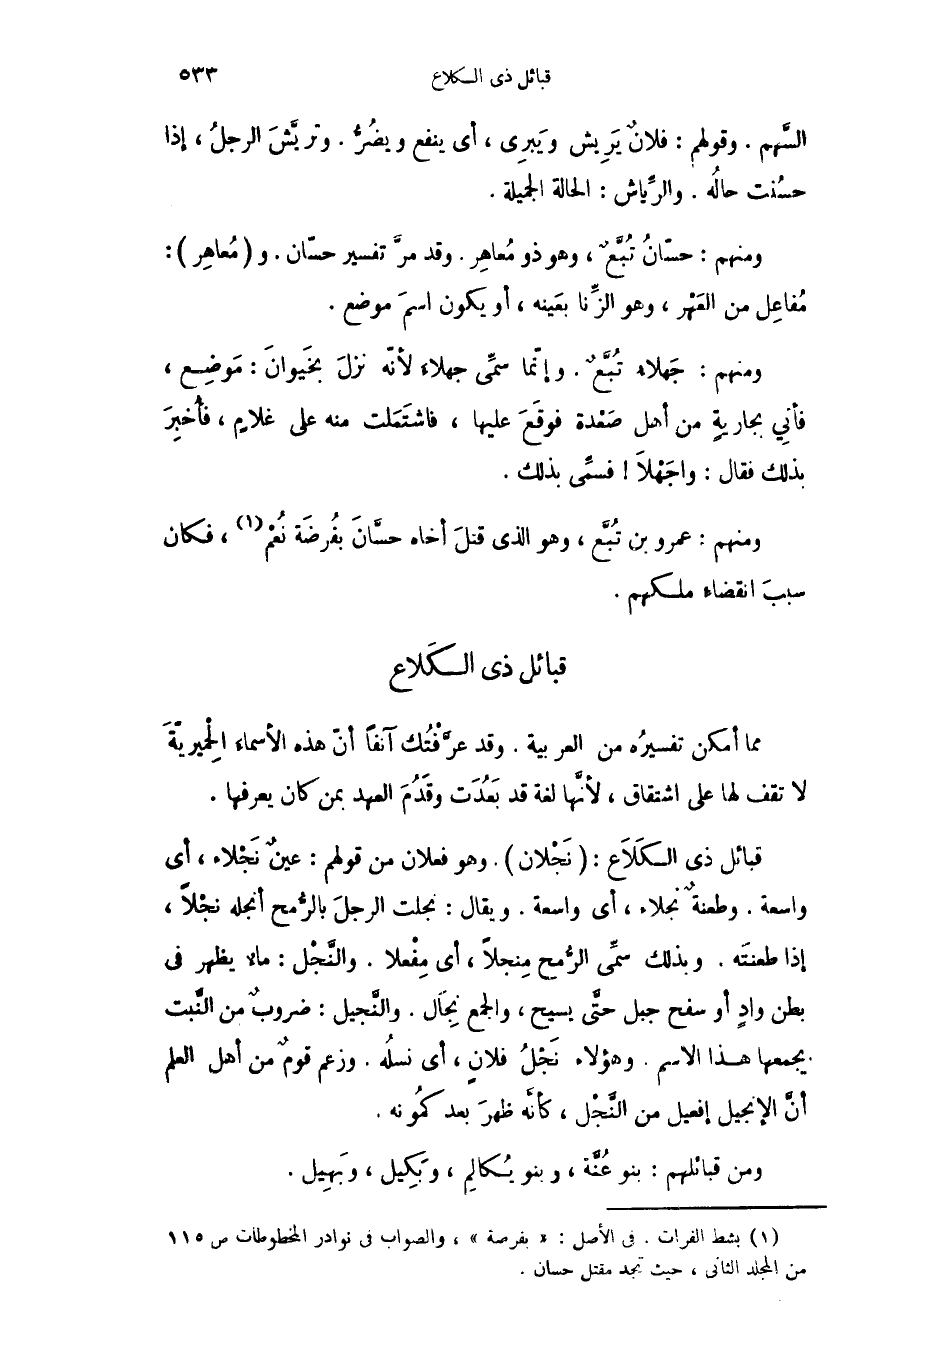 قبائل ذى الكلاع ٥٣٣
السَّهم . وقولهم : فلانٌ يَرِيش ويَبرِى ، أى ينفع ويضُرُّ . وتريَّشَ الرجلُ ، إذا
حسُنت حالُه . والرِّياش : الحالة الجميلة .
ومنهم : حسّانُ تُبَّعٌ ، وهو ذو مُعاهِر . وقد مرَّ تفسير حسّان . و ( مُعاهِر ) :
مُفاعِل من العَهْر ، وهو الزِّنا بعَينه ، أو يكون اسمَ موضع .
ومنهم : جَهلاء تُبَّعٌ . وإنّما سمِّى جهلاء لأنّه نزلَ بخَيوانَ : مَوضِع ،
فأُتِي بجاريةٍ من أهل صَعْدة فوقَعَ عليها ، فاشتَمَلت منه على غلامٍ ، فأُخبِرَ
بذلك فقال : واجَهْلاَ ! فسمِّى بذلك .
ومنهم : عمرو بن تُبَّع ، وهو الذى قتلَ أخاه حسَّانَ بفُرضَة نُعْم (١) ، فكان
سببَ انقضاء ملكهم .
قبائل ذى الكَلاع
مما أمكن تفسيرُه من العربية . وقد عرَّفْتُك آنفاً أنّ هذه الأسماء الحِمْيريّةَ
لا تقف لها على اشتقاق ، لأنَّها لغة قد بَعُدَت وقَدُمَ العهد بمن كان يعرفها .
قبائل ذى الكَلَاع : ( نَجْلان ) . وهو فعلان من قولهم : عينٌ نَجْلاء ، أى
واسعة . وطعنةٌ نجلاء ، أى واسعة . ويقال : نجلت الرجلَ بالرُّمح أنجله نجْلاً ،
إذا طعنتَه . وبذلك سمِّى الرُّمح مِنجلاً ، أى مِفْعلا . والنَّجْل : ماء يظهر فى
بطن وادٍ أو سفح جبل حتَّى يسيح ، والجمع نِجَال . والنَّجيل : ضروبٌ من النَّبت
يجمعها هذا الاسم . وهؤلاء نَجْلُ فلانٍ ، أى نسلُه . وزعم قومٌ من أهل العلم
أنَّ الإنجيل إفعيل من النَّجْل ، كأنَّه ظهرَ بعد كمُونه .
ومن قبائلهم : بنو عُنَّة ، وبنو يُكالِم ، وبَكِيل ، وبَهِيل .
(١) بشط الفرات . فى الأصل : « بفرصة » ، والصواب فى نوادر المخطوطات ص ١١٥
من المجلد الثانى ، حيث تجد مقتل حسان .